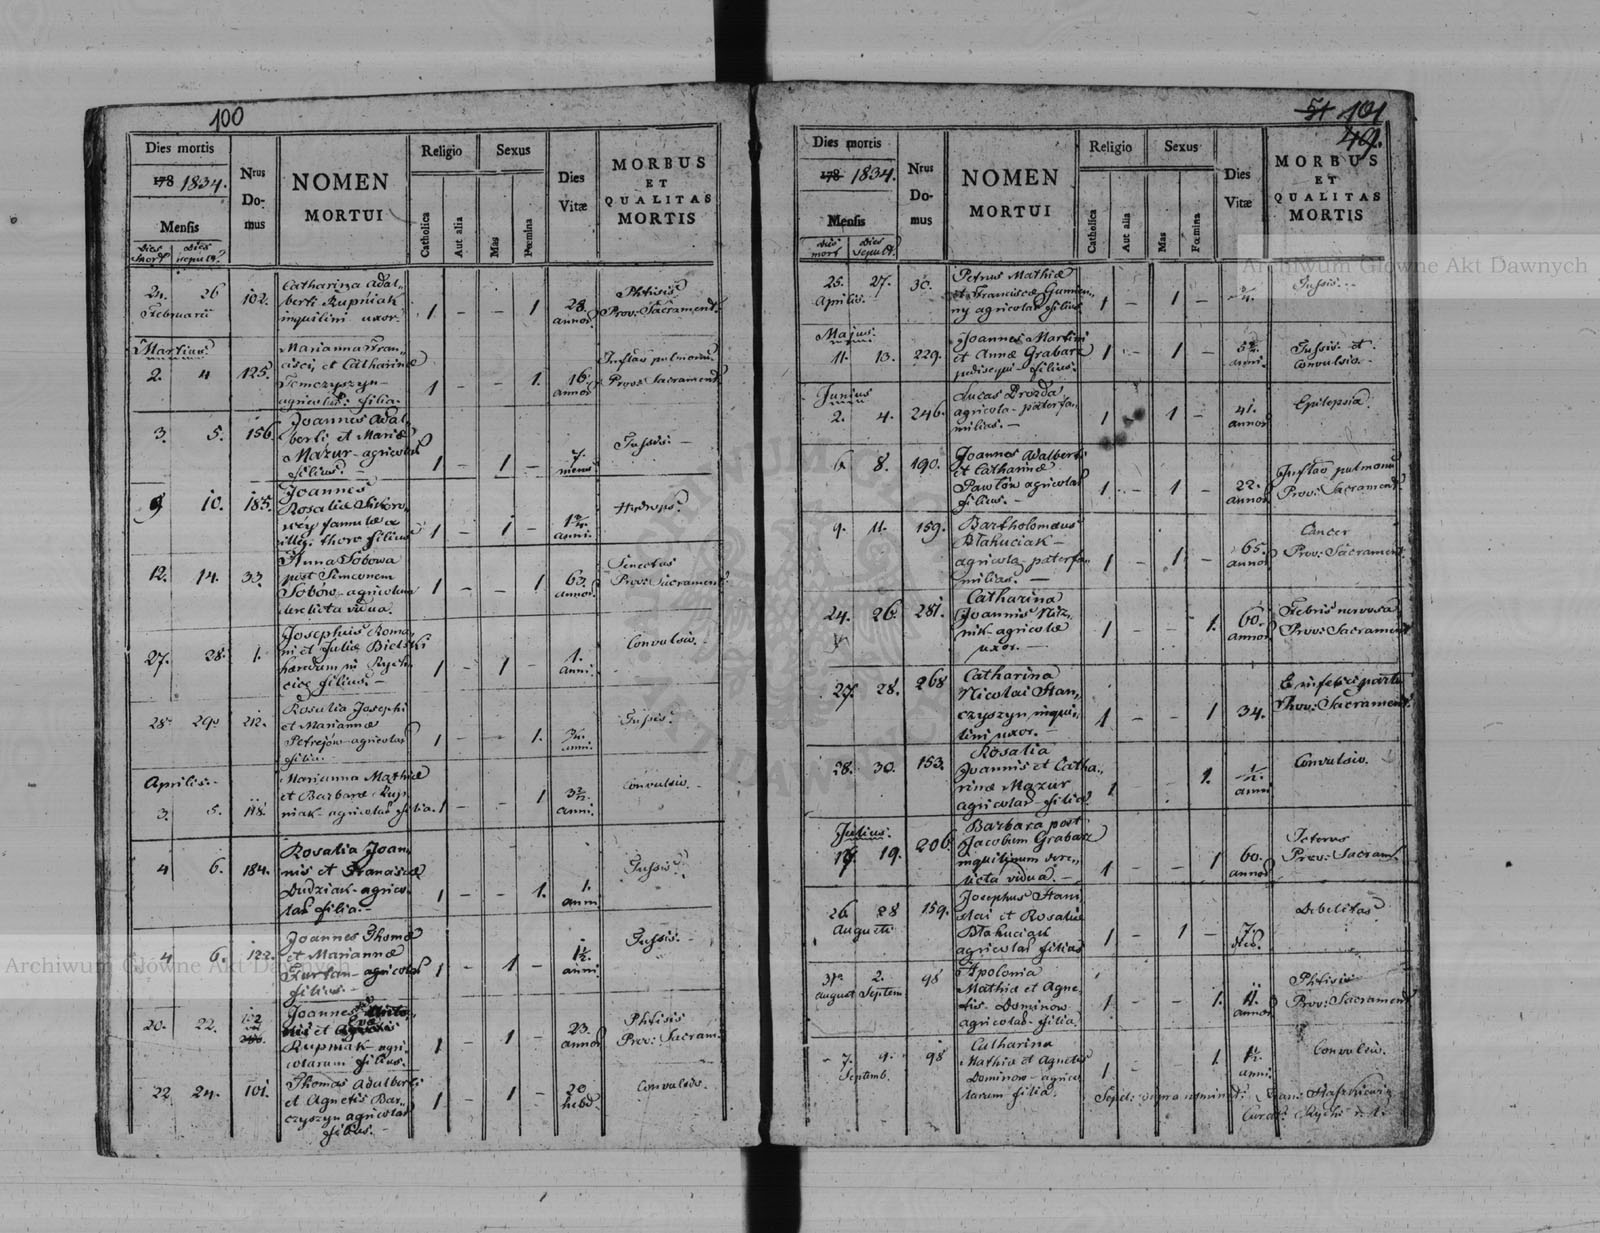 100
Dies mortis
178 1834.
Mensis
Dies Mort. Dies sepult.
Nrus Domus
NOMEN
MORTUI
Religio
Catholica
Aut alia
Sexus
Mas
Fœmina
Dies
Vitæ
MORBUS
ET
QUALITAS
MORTIS
24. 26 102. Catharina Adal-
Februarii berti Rupniak
inquilini uxor. 1 - - 1 28. annor. Phtisis
Prov: Sacrament.
Martius
2. 4 125. Marianna Fran-
cisci et Catharinæ
Temczyszyn
agricolar: filia. 1 - - 1. 16. annor Inflao pulmonu
Prov: Sacrament.
3. 5. 156. Joannes Adal-
berti et Mariæ
Mazur agricolar
filius. 1 - 1 - 7. mens Tussis. -
9 10. 185. Joannes
Rosaliæ Sikoro-
famulæ
illeg: thoro filius 1 - 1 - anni. Hydrops.
12. 14. 33. Anna Sobowa
post Simeonem
Sobów agricolam
derelicta vidua. 1 - - 1 63. annor. Senectus
Prov: Sacrament.
27. 28. 1. Josephus Roma-
ni et Juliæ Bielski
hæredum in Rych-
cice filius. - 1 - 1 - 1. anni. Convulsio. -
28. 29. 212. Rosalia Josephi
et Mariannæ
Petrejów agricolar
filia. 1 - - 1. anni. Tussis.
Aprilis.
3. 5. 118. Marianna Mathiæ
et Barbaræ Rup-
niak agricolar filia. 1 - - 1 anni. Convulsio.
4 6. 184. Rosalia Joan-
nis et Franciscæ
Dudziak agrico-
lar filia. - 1 - - 1. 1. anni Tussis.
4 6. 122. Joannes Thomæ
et Mariannæ
Kurtan agricolar
filius. - 1 - 1 - 1½. anni. Tussis. -
20. 22. 102 Joannes
Eva
Rupniak agri-
colarum filius. 1 - 1 - 23. annor Phtisis
Prov: Sacram.
22 24. 101. Thomas Adalberti
et Agnetis Bar-
czyszyn agricolar
filius. - 1 - 1 - 20 hebd. Convulsio.
51 101
49.
Dies mortis
178 1834.
Mensis
Dies mort Dies sepult.
Nrus Domus
NOMEN
MORTUI
Religio
Catholica
Aut alia
Sexus
Mas
Fœmina
Dies
Vitæ
MORBUS
ET
QUALITAS
MORTIS
25. 27. 30. Petrus Mathiæ
Aprilis. et Franciscæ
agricolar filius 1 - 1 - Tussis. -
Majus
11. 13. 229. Joannes Martini
et Annæ Grabarz
filius. 1 - 1 - anni. Tussis et
convulsio.
Junius
2. 4. 246. Lucas Drozda
agricola paterfa-
milias. - 1 - 1 - 41. annor Epilepsia
6 8. 190. Joannes Adalberti
et Catharinæ
Pawlów agricolar
filius. - 1 - 1 - 22. annor Inflao pulmonu
Prov: Sacrament.
9. 11. 159. Bartholomæus
Błahuciak -
agricola paterfa-
milias. - 1 - 1 - 65. annor Cancer
Prov: Sacrament.
24. 26. 281. Catharina
Joannis
agricolæ
uxor. - 1 - - 1. 60. annor Febris nervosa
Prov: Sacrament
27. 28. 268 Catharina
Nicolai Stan-
czyszyn inqui-
lini uxor. - 1 - - 1 34. partu
Prov: Sacrament.
28. 30. 153. Rosalia
Joannis et Catha-
rinæ Mazur
agricolar filia. 1 - - 1. ½. anni Convulsio.
Julius.
17. 19. 206. Barbara post
Jacobum Grabarz
inquilinum dere-
licta vidua. - 1 - - 1 60. annor Icterus
Prov: Sacram.
26. 28 159. Josephus Stani-
Augusti slai et Rosaliæ
Błahuciak
agricolar filius 1 - 1 - 7. Debilitas
31. 2. 98 Apolonia
August Septem Mathiæ et Agne-
tis Dominow
agricolar filia. 1 - - 1. 11. annor Phtisis
Prov: Sacrament
7. 9. 98 Catharina
Septemb. Mathiæ et Agnetis
Dominow agrico-
larum filia. 1 - - 1 1½. anni. Convulsio.
Sepel: supra nominat:
Archiwum Główne Akt Dawnych
Archiwum Główne Akt Dawnych